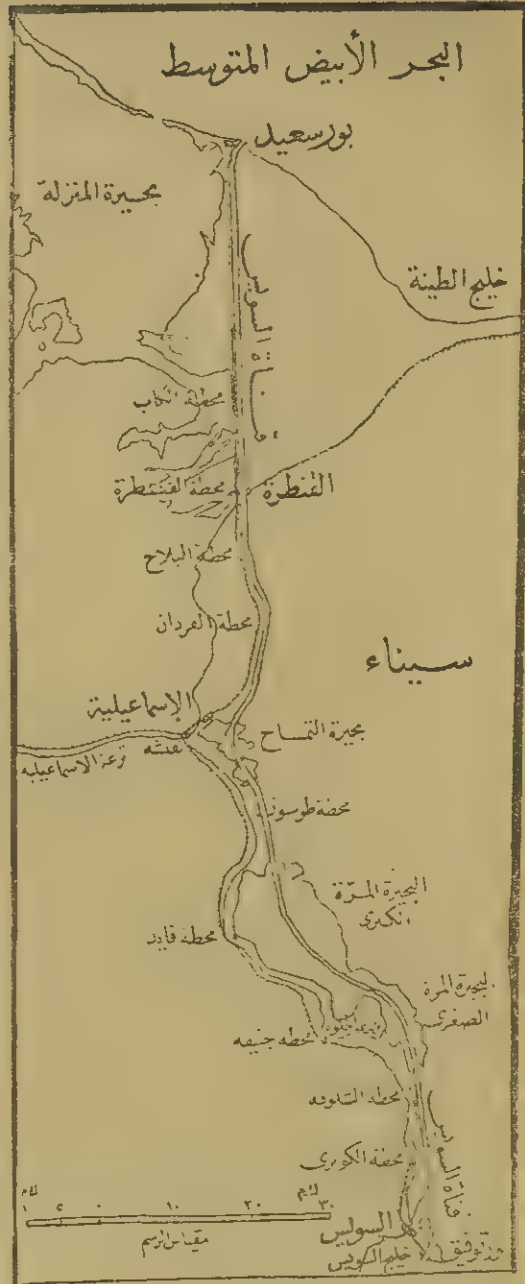 البحر الأبيض المتوسط
بورسعيد
بحيرة المنزلة
خليج الطينة
قناة السويس
محطة الكاب
القنطرة
محطة القنطرة
محطة البلاح
محطة الفردان
سيناء
الإسماعيلية
بحيرة التمساح
ترعة الاسماعيلية
محطة طوسون
البحيرة المرّة
الكبرى
محطة فايد
البحيرة المرة
الصغرى
محطة جنيفه
محطه الشلوفه
محطة الكوبرى
قناة السويس
السويس
خليج السويس
كم
١٠
٢٠
٣٠
كم
مقياس الرسم